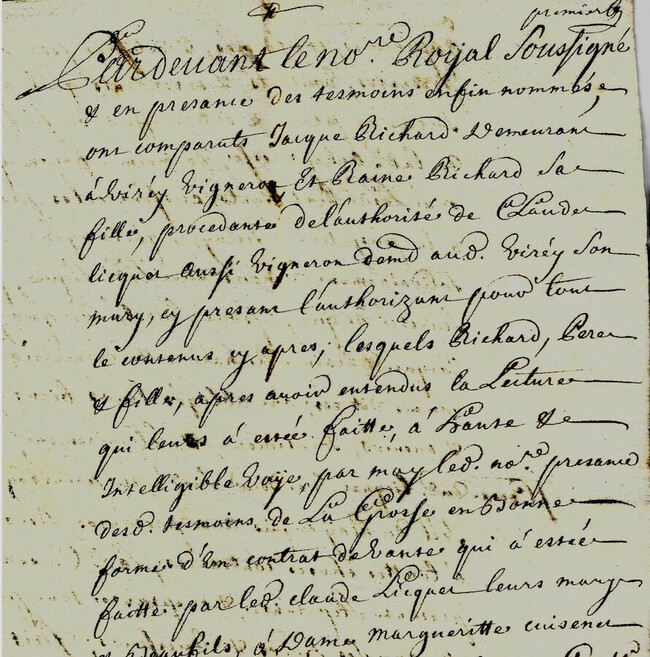 premier
Pardevant le no.re Royal Soussigné
& en presance des tesmoins enfin nommés,
ont comparuts Jacque Richard Demeurant
à Viréy Vigneron Et Raine Richard Sa
fille, procedante de l'authorité de Claude
licquet aussi Vigneron demt aud. Viréy Son
mary, cy presant l'authorizant pour tout
le contenus cy apres; lesquels Richard, Pere
& fille, apres avoir entendus la Lecture
qui leurs à estée faitte, à haute &
Intelligible Voÿe, par moy led. no.re presance
desd. tesmoins de La Grosse en Bonne
forme d'un contrat de Vante qui à estée
faitte par led. claude Licquet leurs mary
& Beaufils, à Dame margueritte cuisenet